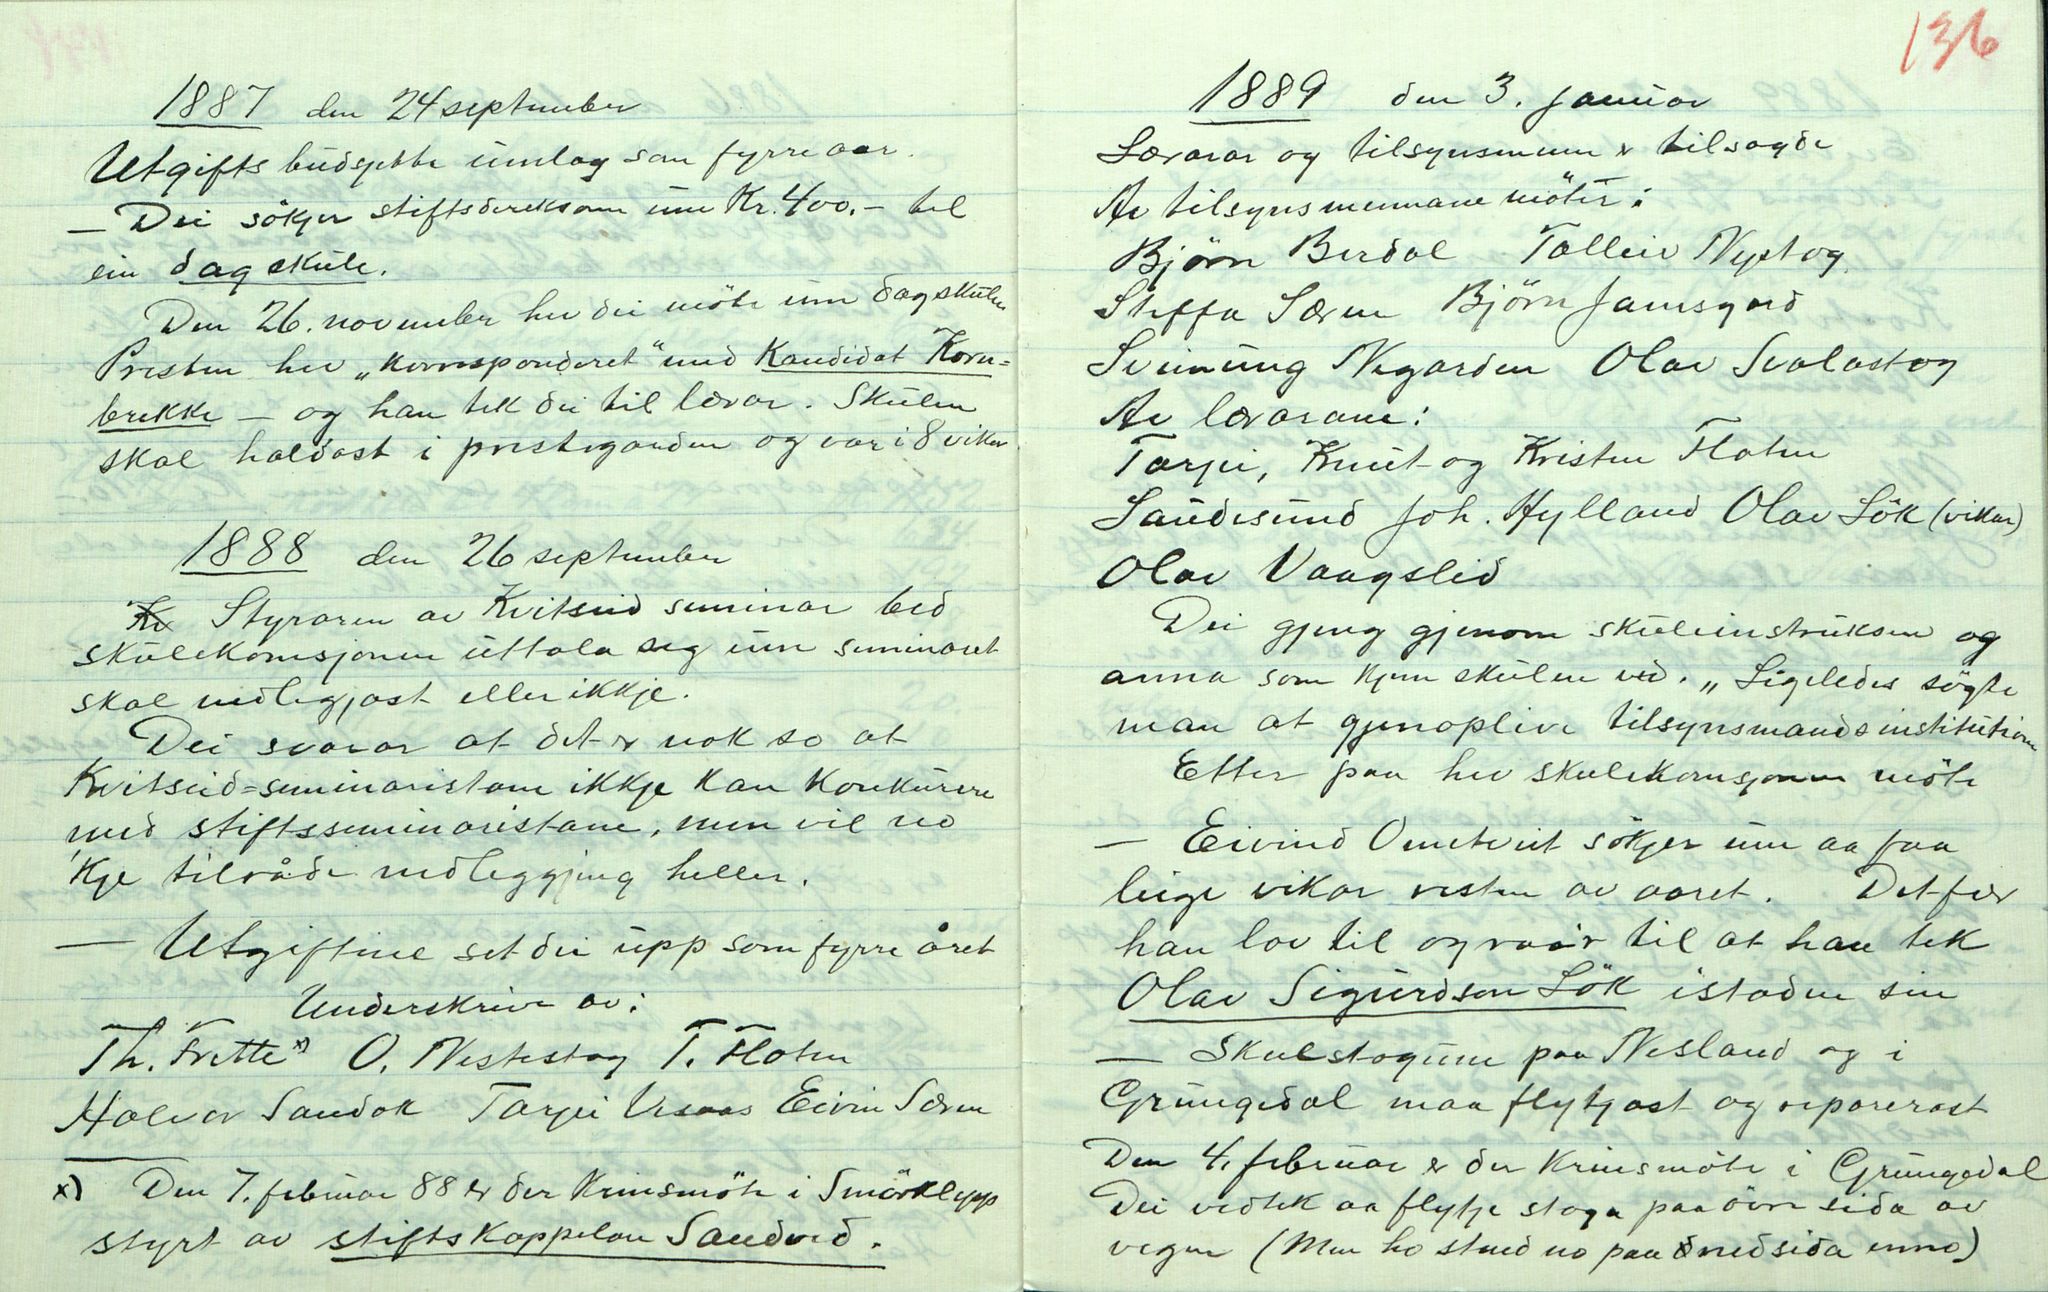 1887 den 24 september
Utgifts budsjette umlag som fyrre aar.
— Dei søkjer stiftsdireksjonen um Kr. 400.– til
ein dagskule.
Den 26. november hev dei möte um dagskulen
Presten hev „korresponderet“ med Kandidat Korn=
brekke — og han tek dei til lærar. Skulen
skal haldast i prestegarden og var i 8 vikor
1888 den 26 september
Styraren av Kvitseid seminar bed
skulekomsjonen uttala seg um seminaret
skal nedlegjast eller ikkje.
Dei svarar at det er nok so at
Kvitseid=seminaristane ikkje kan konkurere
med stiftsseminaristane, men vil no
'kje tilråde nedleggjing heller.
— Utgiftine set dei upp som fyrre året
Underskrive av:
Th. Frette x) O. Nestestog T. Floten
Halvor Sandok Tarjei Vesaas Eivin Særen
x) Den 7. februar 88 er der Krinsmöte i Smörklepp
styrt av stiftskappelan Sandved.
136
1889 den 3. januar
Lærarar og tilsynsmenn er tilsagde
Av tilsynsmennane möter:
Björn Berdal Tolleiv Nystog
Steffa Særen Björn Jamsgard
Sveinung Negarden Olav Svalastog
Av lærarane:
Tarjei, Knut og Kristen Floten
Saudesund Joh. Hylland Olav Lök (vikar)
Olav Vaagslid
Dei gjeng gjenom skuleinstruksen og
anna som kjem skulen ved. „Ligeledes søgte
man at gjenoplive tilsynsmandsinstitutionen
Etter paa hev skulekomsjonen möte
— Eivind Omtveit søkjer um aa faa
leige vikar resten av aaret. Det fær
han lov til og raar til at han tek
Olav Sigurdson Lök istaden sin
— Skulstogune paa Nesland og i
Grungedal maa flytjast og reparerast
Den 4. februar er der Krinsmöte i Grungedal
Dei vedtek aa flytje stoga paa övre sida av
vegen (Men ho stend no paa nedsida enno)